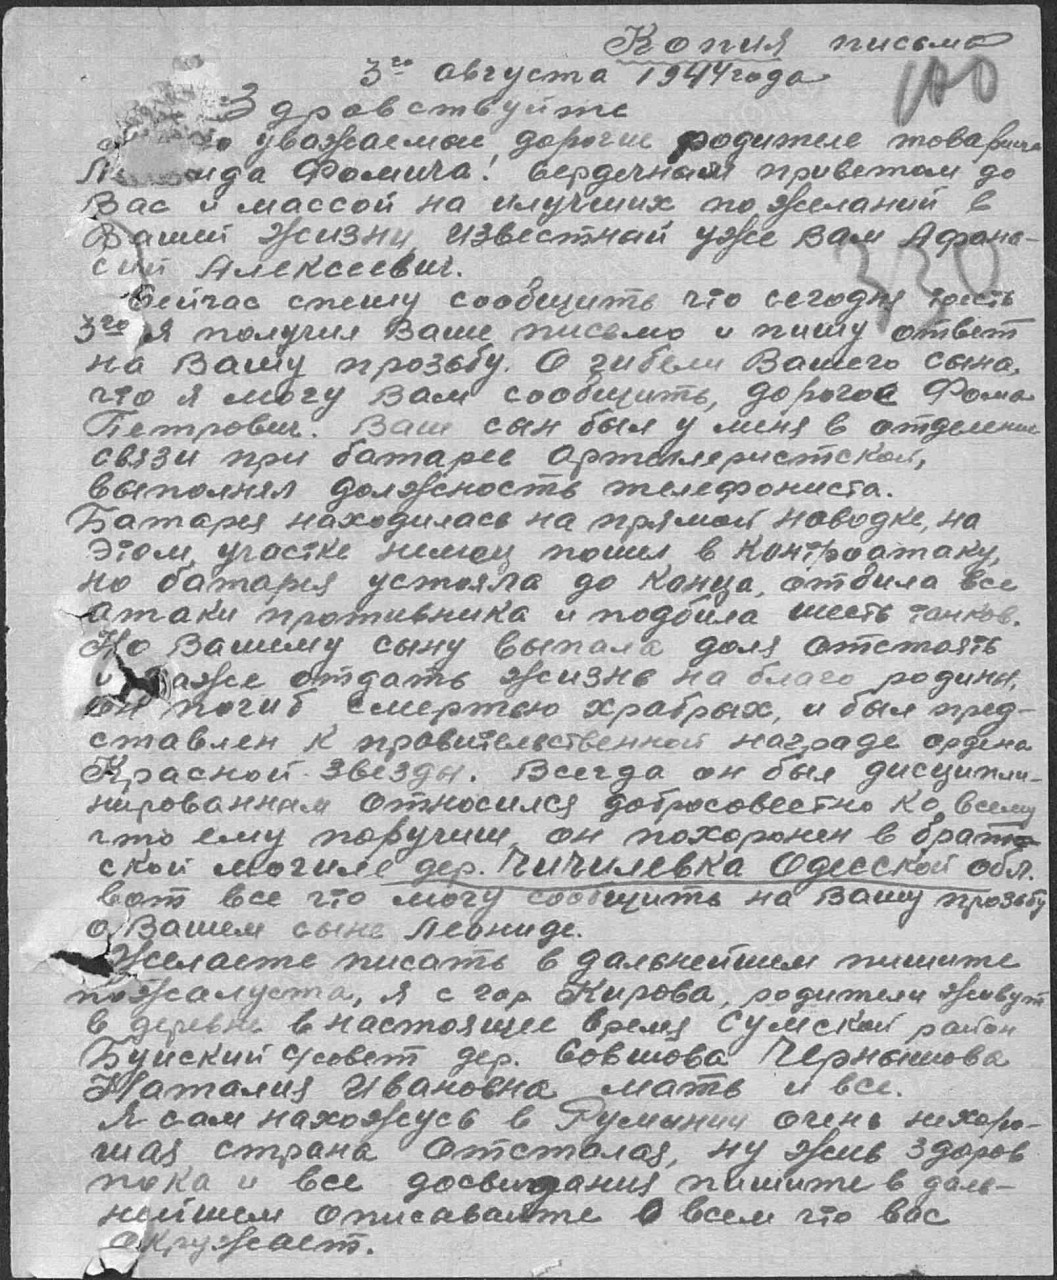 Копия письма
3го августа 1944 года
100
Здравствуйте
уважаемые дорогие родителе товарища
Фомича! Сердечный приветом до
Вас и массой на илучших пожеланий в
Вашей жизни, известный уже Вам Афана-
сий Алексеевич.
330
Сейчас спешу сообщить что сегодня тоесть
3го я получил Ваше письмо и пишу ответ
на Вашу прозьбу. О гибели Вашего сына,
что я могу Вам сообщить, дорогое Фома
Петрович. Ваш сын был у меня в отделение
связи при батарее артиллеристской,
выполнял должность телефониста.
Батарея находилась на прямой наводке, на
этом участке немец пошел в контратаку,
но батарея устояла до конца, отбила все
атаки противника и подбила шесть танков.
Но Вашему сыну выпала доля отстоять
и даже отдать жизнь на благо родины,
он погиб смертью храбрых, и был пред-
ставлен к правительственной награде ордена
Красной звезды. Всегда он был дисципли-
нированным относился добросовестно ко всему
что ему поручиш, он похоронен в брат
ской могиле дер. Чичилевка Одесской обл.
вот все что могу сообщить на Вашу прозьбу
о Вашем сыне Леониде.
Желаете писать в дальнейшем пишите
пожалуста, я с гор Кирова, родители живут
в деревне в настоящее время Сумской район
Буйский с/совет дер. Совшова Чернышова
Наталия Ивановна мать и все.
Я сам нахожусь в Румынии очень нехоро-
шая страна отсталая, ну жив здоров
пока и все досвидания пишите в даль-
нейшем описавайте о всем что вас
окружает.